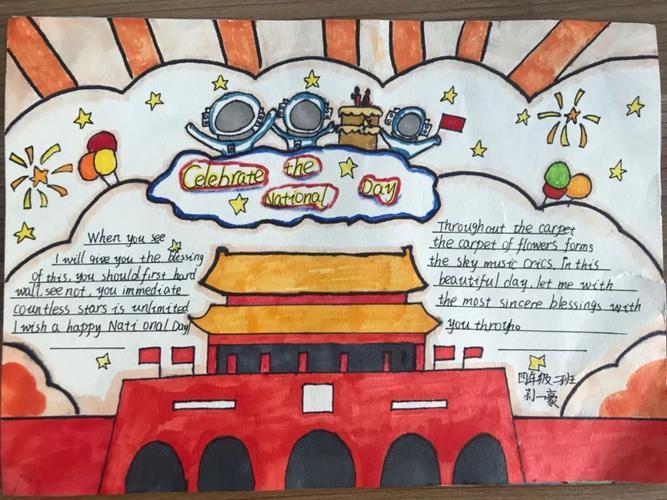 Celebrate the
National Day
When you see
I will give you the blessing
of this, you should first hard
wall, see not, you immediate
countless stars is unlimited
I wish a happy Nati onal Day
Throughout the carpet
the carpet of flowers forms
the sky music crics. In this
beautiful day, let me with
the most sincere blessings with
you throyho.
四年级二班
刘一豪